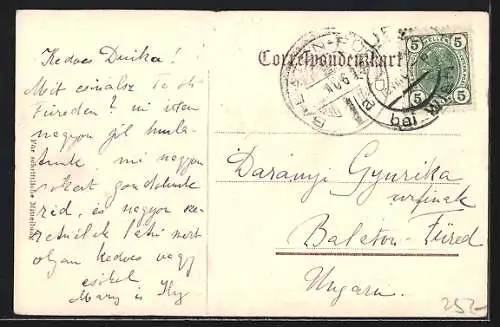 Kedves Duika!
Mit csinálsz Te ott
Füreden? mi itten
nagyon jól mula-
tunk mi nagyon
sokat gondolunk
rád, és nagyon sze-
retnélek látni mert
olyan kedves vagy
csókol
Mary és
Für schriftliche Mitteilung
Correspondenzkarte
BALATON-FÜ
bei
5 5
5 5
Darányi Gyurika
urfinak
Balaton-Füred
Ungarn.
252-